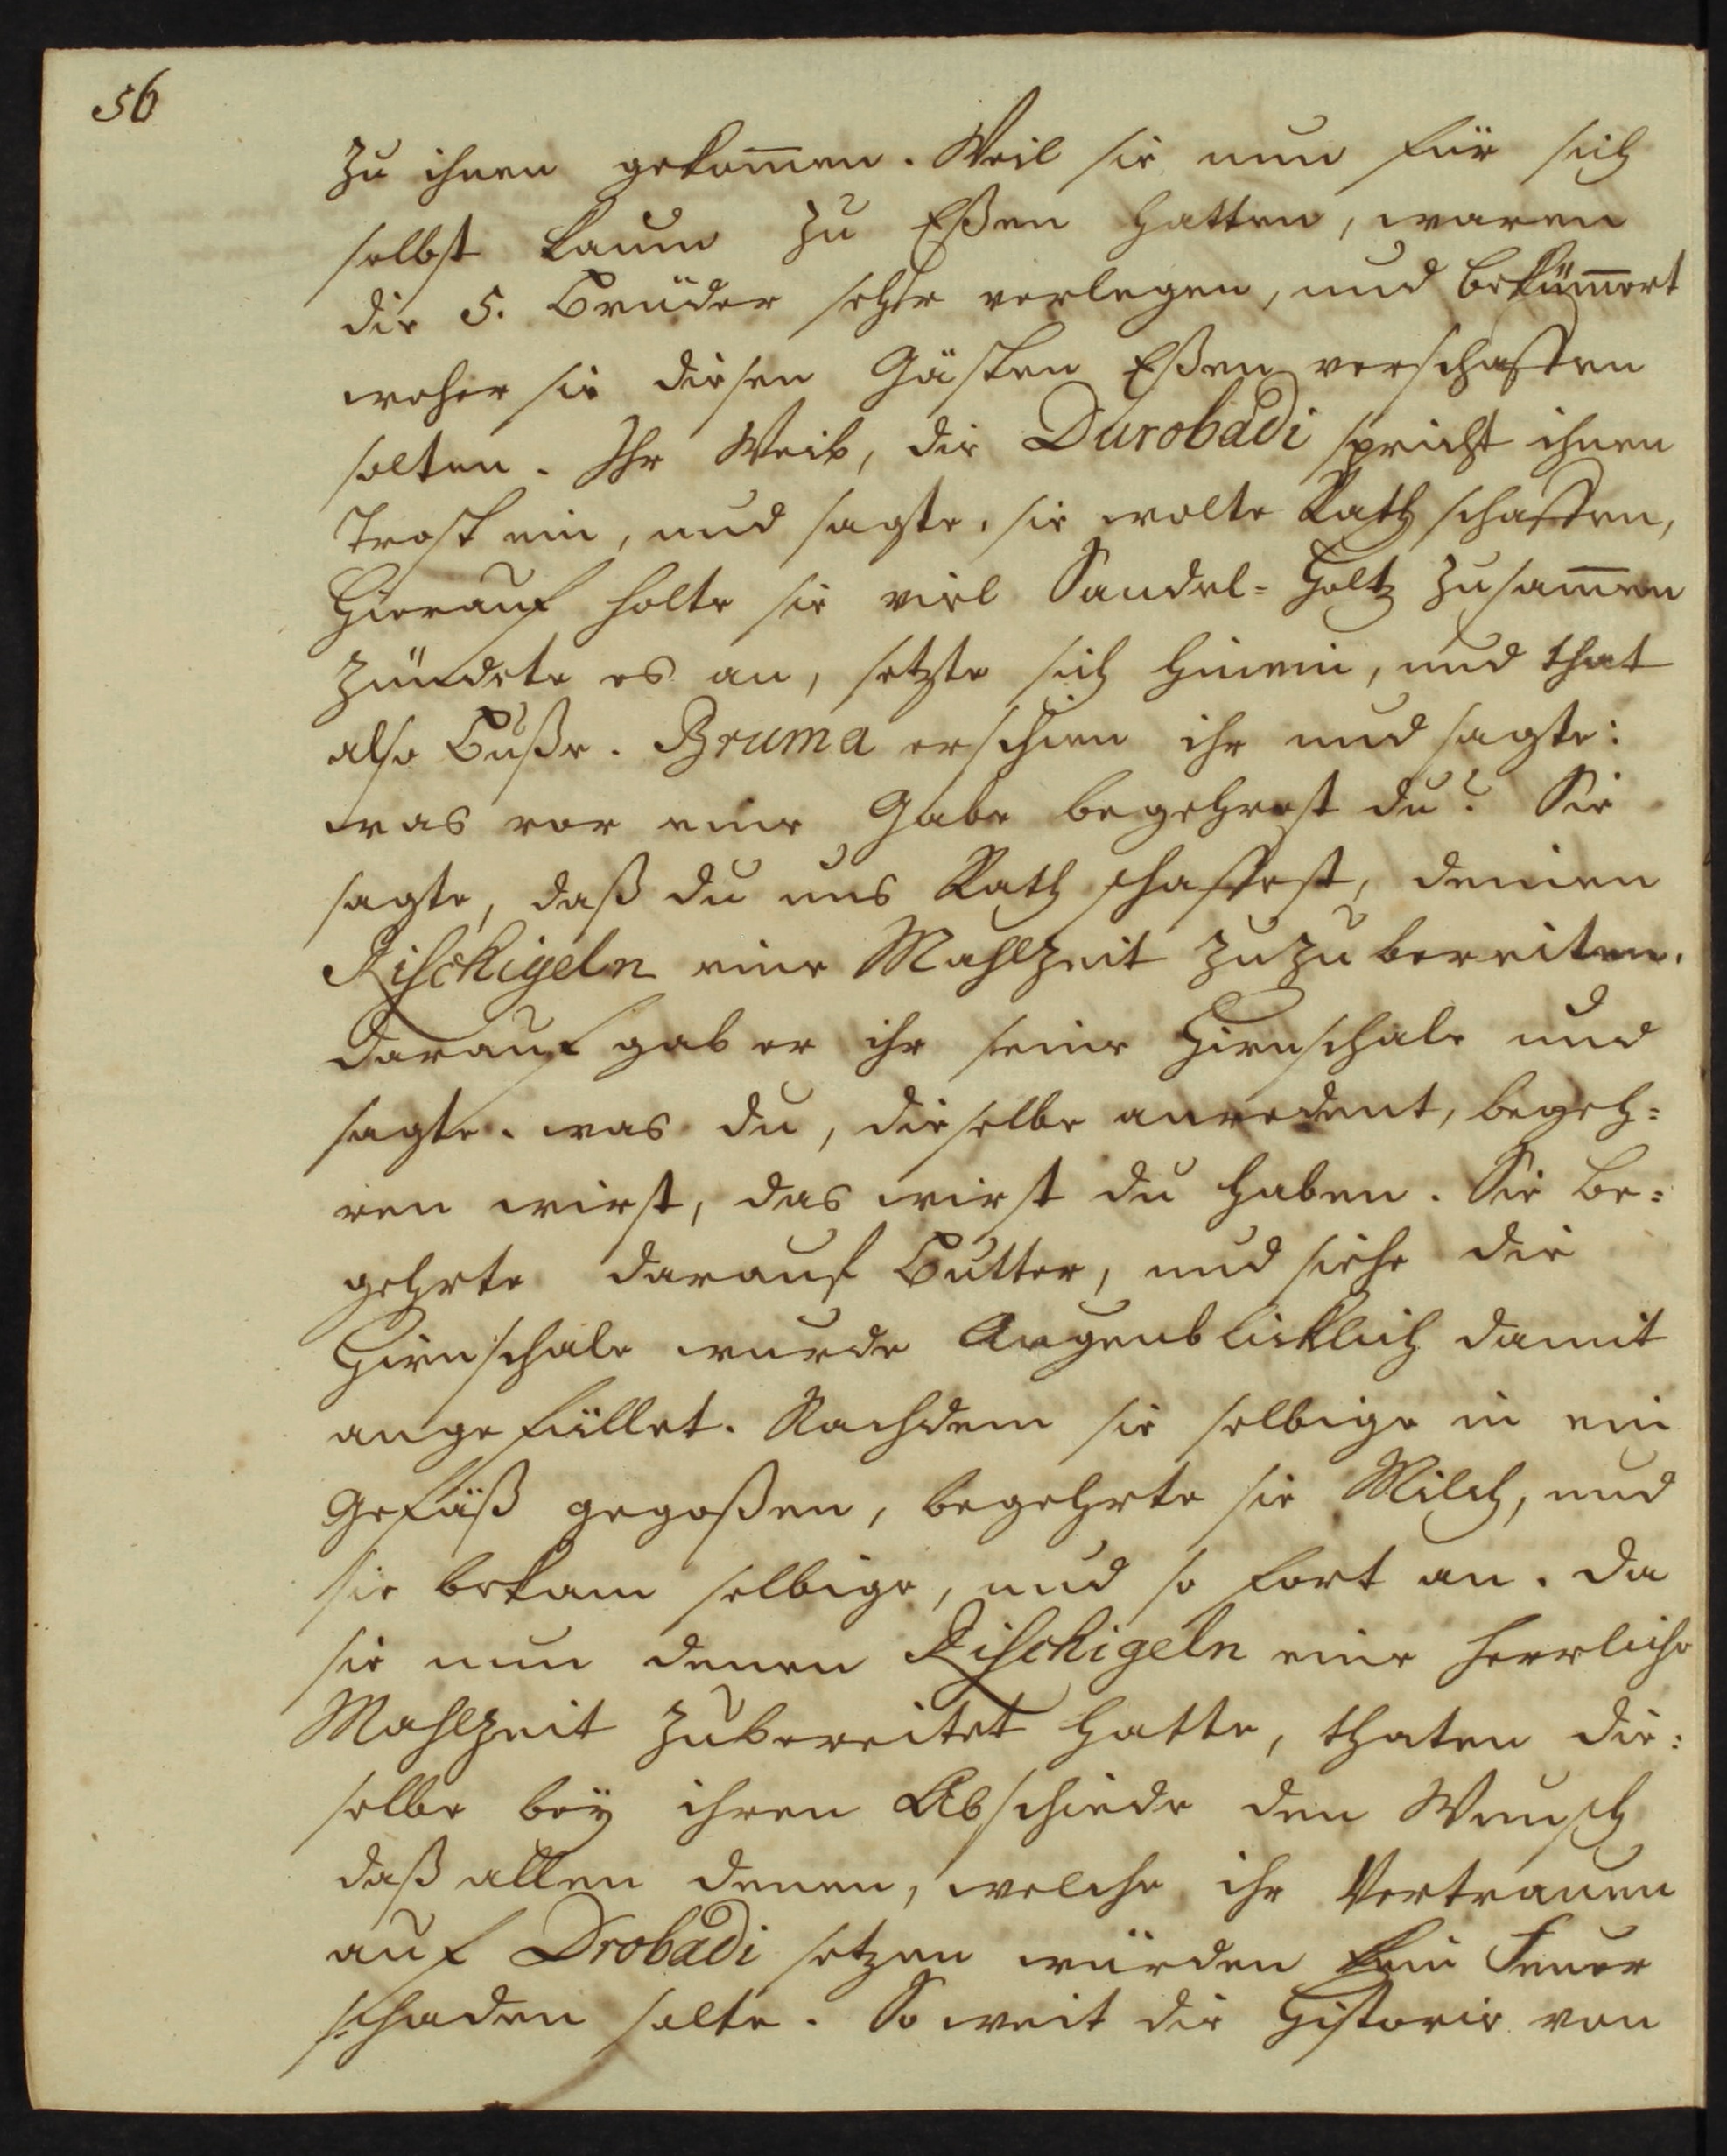 56
zu ihnen gekom̅en. Weil sie nun für sich
selbst kaum zu Eßen hatten, waren
die 5. Brüder sehr verlegen, und bekü̅mert
woher sie diesen Gästen Eßen verschaffen
solten. Ihr Weib, die Durobadi spricht ihnen
Trost ein, und sagte, sie wolte Rath schaffen,
Hierauf holte sie viel Sandel-Holtz zusam̅en
zündete es an, setzte sich hinein, und that
also Buße. Bruma erschien ihr und sagte:
was vor eine Gabe begehrest du? Sie
sagte, daß du uns Rath schaffest, denien
Rischigeln eine Mahlzeit zuzubereiten.
Darauf gab er ihr seine Hirnschale und
sagte. was du, dieselbe anredent, begeh=
ren wirst, das wirst du haben. Sie be=
gehrte darauf Butter, und siehe die
Hirnschale wurde Augenblicklich damit
angefüllet. Nachdem sie selbige in ein
Gefäß gegoßen, begehrte sie Milch, und
sie bekam selbige, und so fort an. Da
sie nun denen Rischigeln eine herrliche
Mahlzeit zubereitet hatte, thaten die=
selbe beÿ ihren Abschiede den Wunsch
daß allen denen, welche ihr Vertrauen
auf Drobadi setzen würden kein Feuer
schaden solte. So weit die Historie von